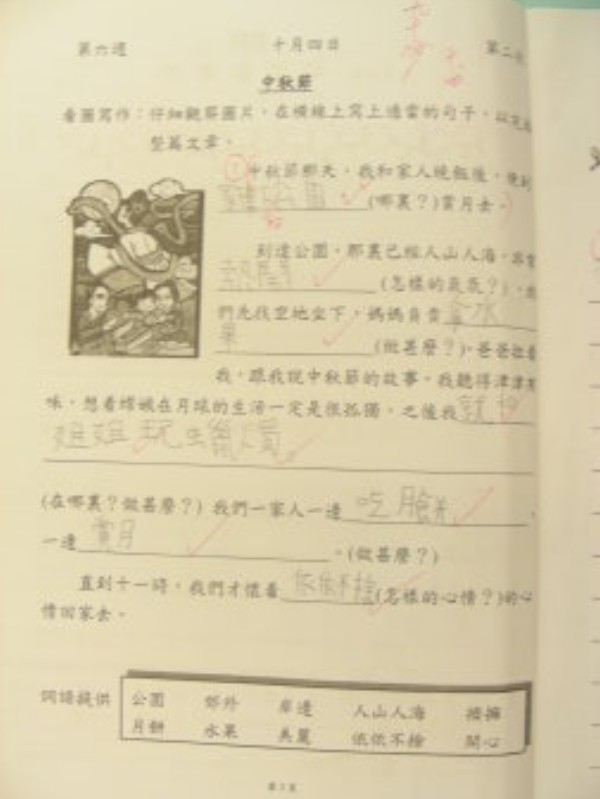 第六週 十月四日 第二
中秋節
看圖寫作：仔細觀察圖片，在橫線上寫上適當的句子，以完成
整篇文章。
中秋節那天，我和家人晚飯後，便到
公園 (哪裏？)賞月去。
到達公園，那裏已經人山人海，非常
熱鬧 (怎樣的氣氛？)，我
們先找空地坐下，媽媽負責拿水
果 (做甚麼？)，爸爸拉着
我，跟我說中秋節的故事，我聽得津津有
味，想着嫦娥在月球的生活一定是很孤獨。之後我就和
姐姐玩
(在哪裏？做甚麼？) 我們一家人一邊 吃月餅，
一邊 賞月 。(做甚麼？)
直到十一時，我們才懷着 依依不捨 (怎樣的心情？)的心
情回家去。
詞語提供 公園 郊外 岸邊 人山人海
月餅 水果 美麗 依依不捨 開心